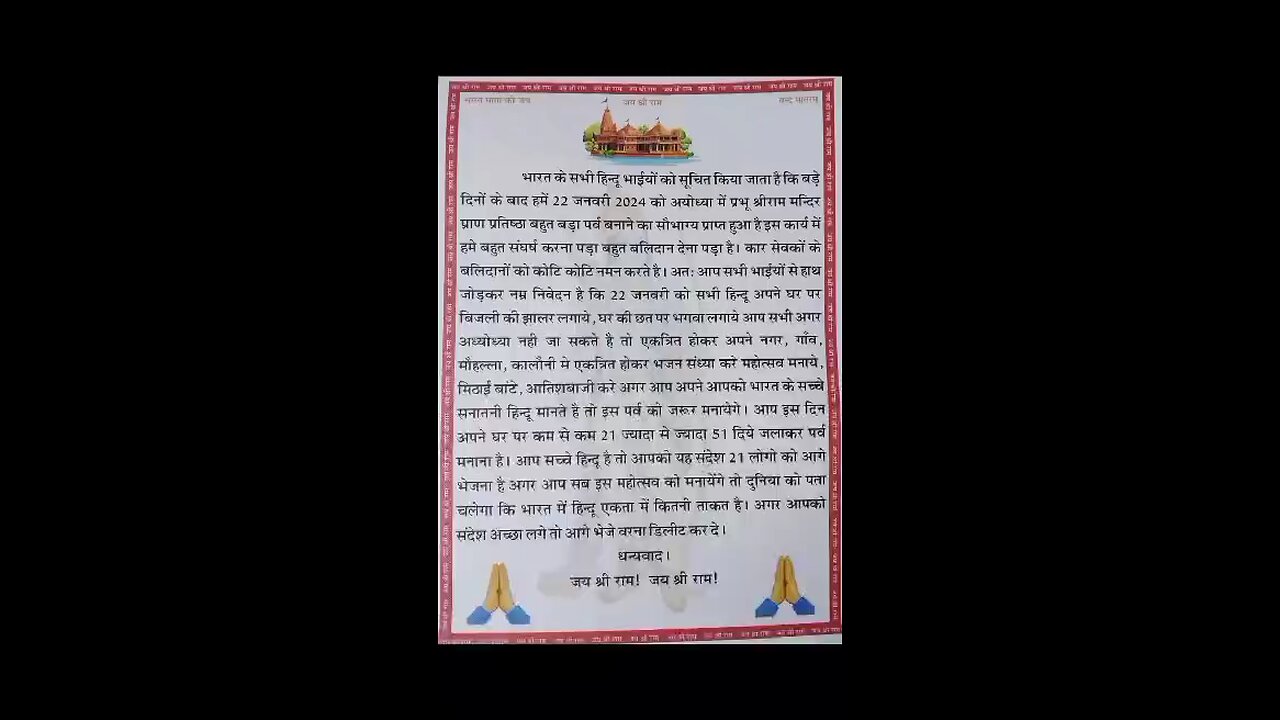 जय श्री राम जय श्री राम जय श्री राम जय श्री राम जय श्री राम जय श्री राम जय श्री राम जय श्री राम जय श्री राम जय श्री राम जय श्री राम
भारत माता की जय जय श्री राम वन्दे मातरम्
भारत के सभी हिन्दू भाईयों को सूचित किया जाता है कि बड़े
दिनों के बाद हमें 22 जनवरी 2024 को अयोध्या में प्रभू श्रीराम मन्दिर
प्राण प्रतिष्ठा बहुत बड़ा पर्व बनाने का सौभाग्य प्राप्त हुआ है इस कार्य में
हमे बहुत संघर्ष करना पड़ा बहुत बलिदान देना पड़ा है। कार सेवकों के
बलिदानों को कोटि कोटि नमन करते है। अतः आप सभी भाईयों से हाथ
जोड़कर नम्र निवेदन है कि 22 जनवरी को सभी हिन्दू अपने घर पर
बिजली की झालर लगाये, घर की छत पर भगवा लगाये आप सभी अगर
अध्योध्या नही जा सकते है तो एकत्रित होकर अपने नगर, गाँव,
मौहल्ला, कालौनी मे एकत्रित होकर भजन संध्या करे महोत्सव मनाये,
मिठाई बांटे, आतिशबाजी करे अगर आप अपने आपको भारत के सच्चे
सनातनी हिन्दू मानते है तो इस पर्व को जरूर मनायेगे। आप इस दिन
अपने घर पर कम से कम 21 ज्यादा से ज्यादा 51 दिये जलाकर पर्व
मनाना है। आप सच्चे हिन्दू है तो आपको यह संदेश 21 लोगो को आगे
भेजना है अगर आप सब इस महोत्सव को मनायेंगे तो दुनिया को पता
चलेगा कि भारत में हिन्दू एकता में कितनी ताकत है। अगर आपको
संदेश अच्छा लगे तो आगे भेजे वरना डिलीट कर दे।
धन्यवाद।
जय श्री राम! जय श्री राम!